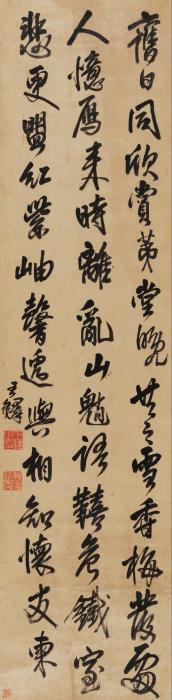 舊日同欣賞茅堂晚共之雪香梅發處
人憶雁來時離亂山魈語囏危鐵室
悲更盟紅紫岫馨遞與相知懷友柬
王鐸